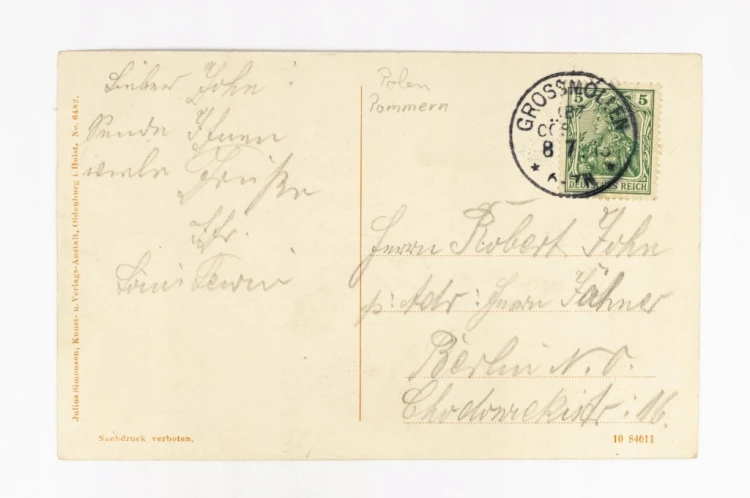 Lieber John!
Sende Ihnen
viele Grüße
Ihr.
Polen
Pommern
GROSSMÖLLEN
8 7
5 5
DEUTSCHES REICH
Herrn Robert John
p: Adr: Herrn Jähner
Berlin N. O.
Chodowieckistr: 16.
Julius Simonsen, Kunst- u. Verlags-Anstalt, Oldenburg i. Holst. No. 6482.
Nachdruck verboten.
10 84611